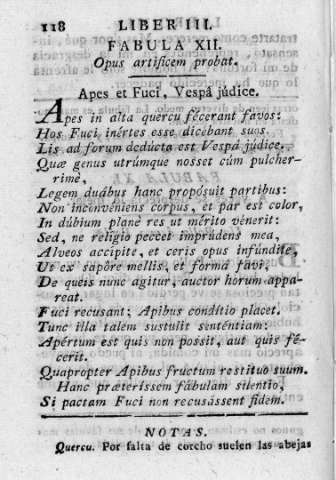 118 LIBER III.
FABULA XII.
Opus artificem probat.
Apes et Fuci, Vespâ júdice.
Apes in alta quercu fécerant favos:
Hos Fuci inértes esse dicébant suos.
Lis ad forum dedúcta est Vespâ júdice.
Quæ genus utrúmque nosset cúm pulcher-
rimè,
Legem duábus hanc propósuit partibus:
Non inconvéniens corpus, et par est color,
In dúbium planè res ut mérito vénerit:
Sed, ne religio peccet imprúdens mea,
Alveos accípite, et ceris opus infúndite,
Ut ex sapóre mellis, et forma favi,
De queis nunc agitur, auctor horum appa-
reat.
Fuci recusant; Apibus condítio placet.
Tunc illa talem sustulit senténtiam:
Apértum est quis non possit, aut quis fé-
cerit.
Quapropter Apibus fructum restítuo suum.
Hanc præteríssem fábulam silentio,
Si pactam Fuci non recusássent fidem.
NOTAS.
Quercu. Por falta de corcho suelen las abejas